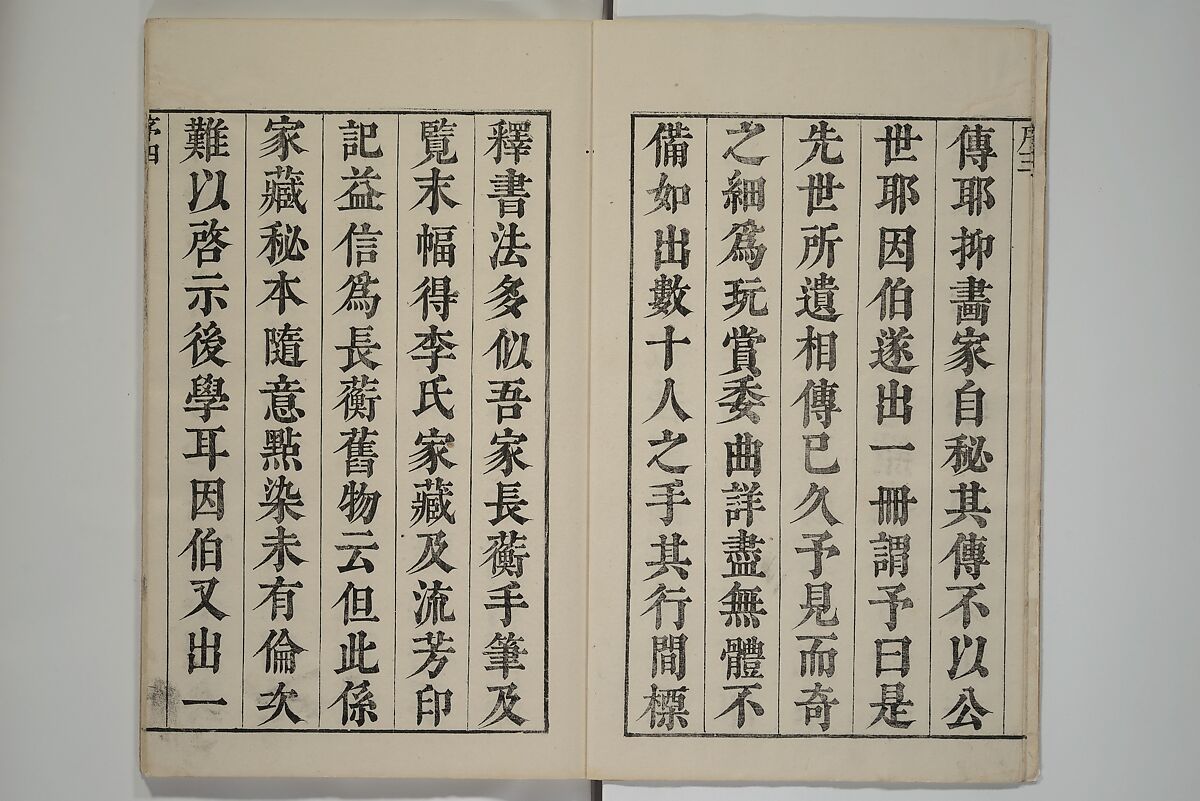 序三
傳耶抑畵家自秘其傳不以公
世耶因伯遂出一冊謂予曰是
先世所遺相傳已久予見而奇
之細爲玩賞委曲詳盡無體不
備如出數十人之手其行間標
釋書法多似吾家長蘅手筆及
覽末幅得李氏家藏及流芳印
記益信爲長蘅舊物云但此係
家藏秘本隨意點染未有倫次
難以啓示後學耳因伯又出一
序四